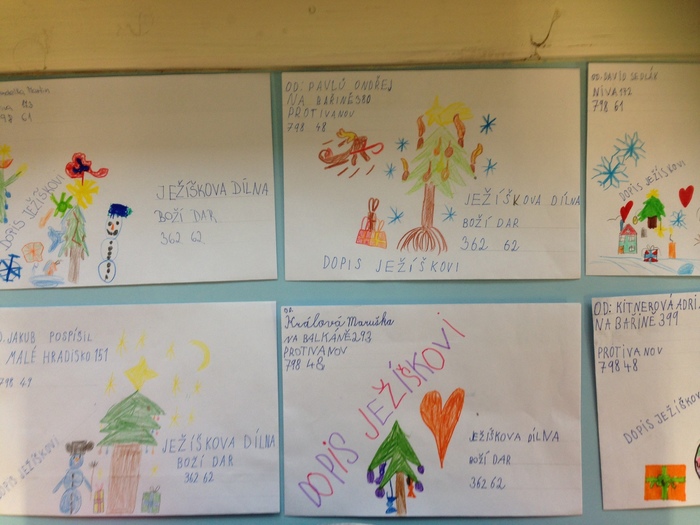 798 61
DOPIS JEŽÍŠKOVI
JEŽÍŠKOVA DÍLNA
BOŽÍ DAR
362 62
OD: PAVLŮ ONDŘEJ
NA BAŘINĚ 380
PROTIVANOV
798 48
JEŽÍŠKOVA DÍLNA
BOŽÍ DAR
362 62
DOPIS JEŽÍŠKOVI
OD: DAVID SEDLÁK
NIVA 142
798 61
DOPIS JEŽÍŠKOVI
JAKUB POSPÍŠIL
MALÉ HRADISKO 151
798 49
DOPIS JEŽÍŠKOVI
JEŽÍŠKOVA DÍLNA
BOŽÍ DAR
362 62
OD
Králová Maruška
NA BALKÁNĚ 293
PROTIVANOV
798 48
DOPIS JEŽÍŠKOVI
JEŽÍŠKOVA DÍLNA
BOŽÍ DAR
362 62
OD: KITNEROVÁ ADRI
NA BAŘINĚ 399
PROTIVANOV
798 48
DOPIS JEŽÍŠKOV